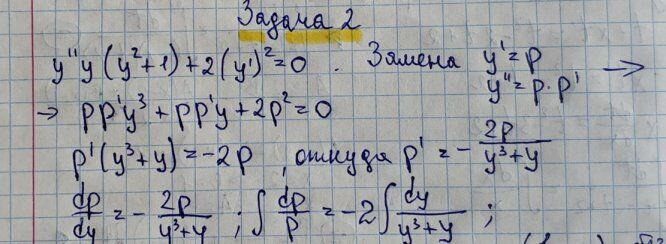 Задача 2
y''y(y²+1)+2(y')²=0. Замена y'=p →
y''=p·p'
→ pp'y³+pp'y+2p²=0
p'(y³+y)=-2p, откуда p'=-2p/(y³+y)
dp/dy=-2p/(y³+y); ∫dp/p=-2∫dy/(y³+y);